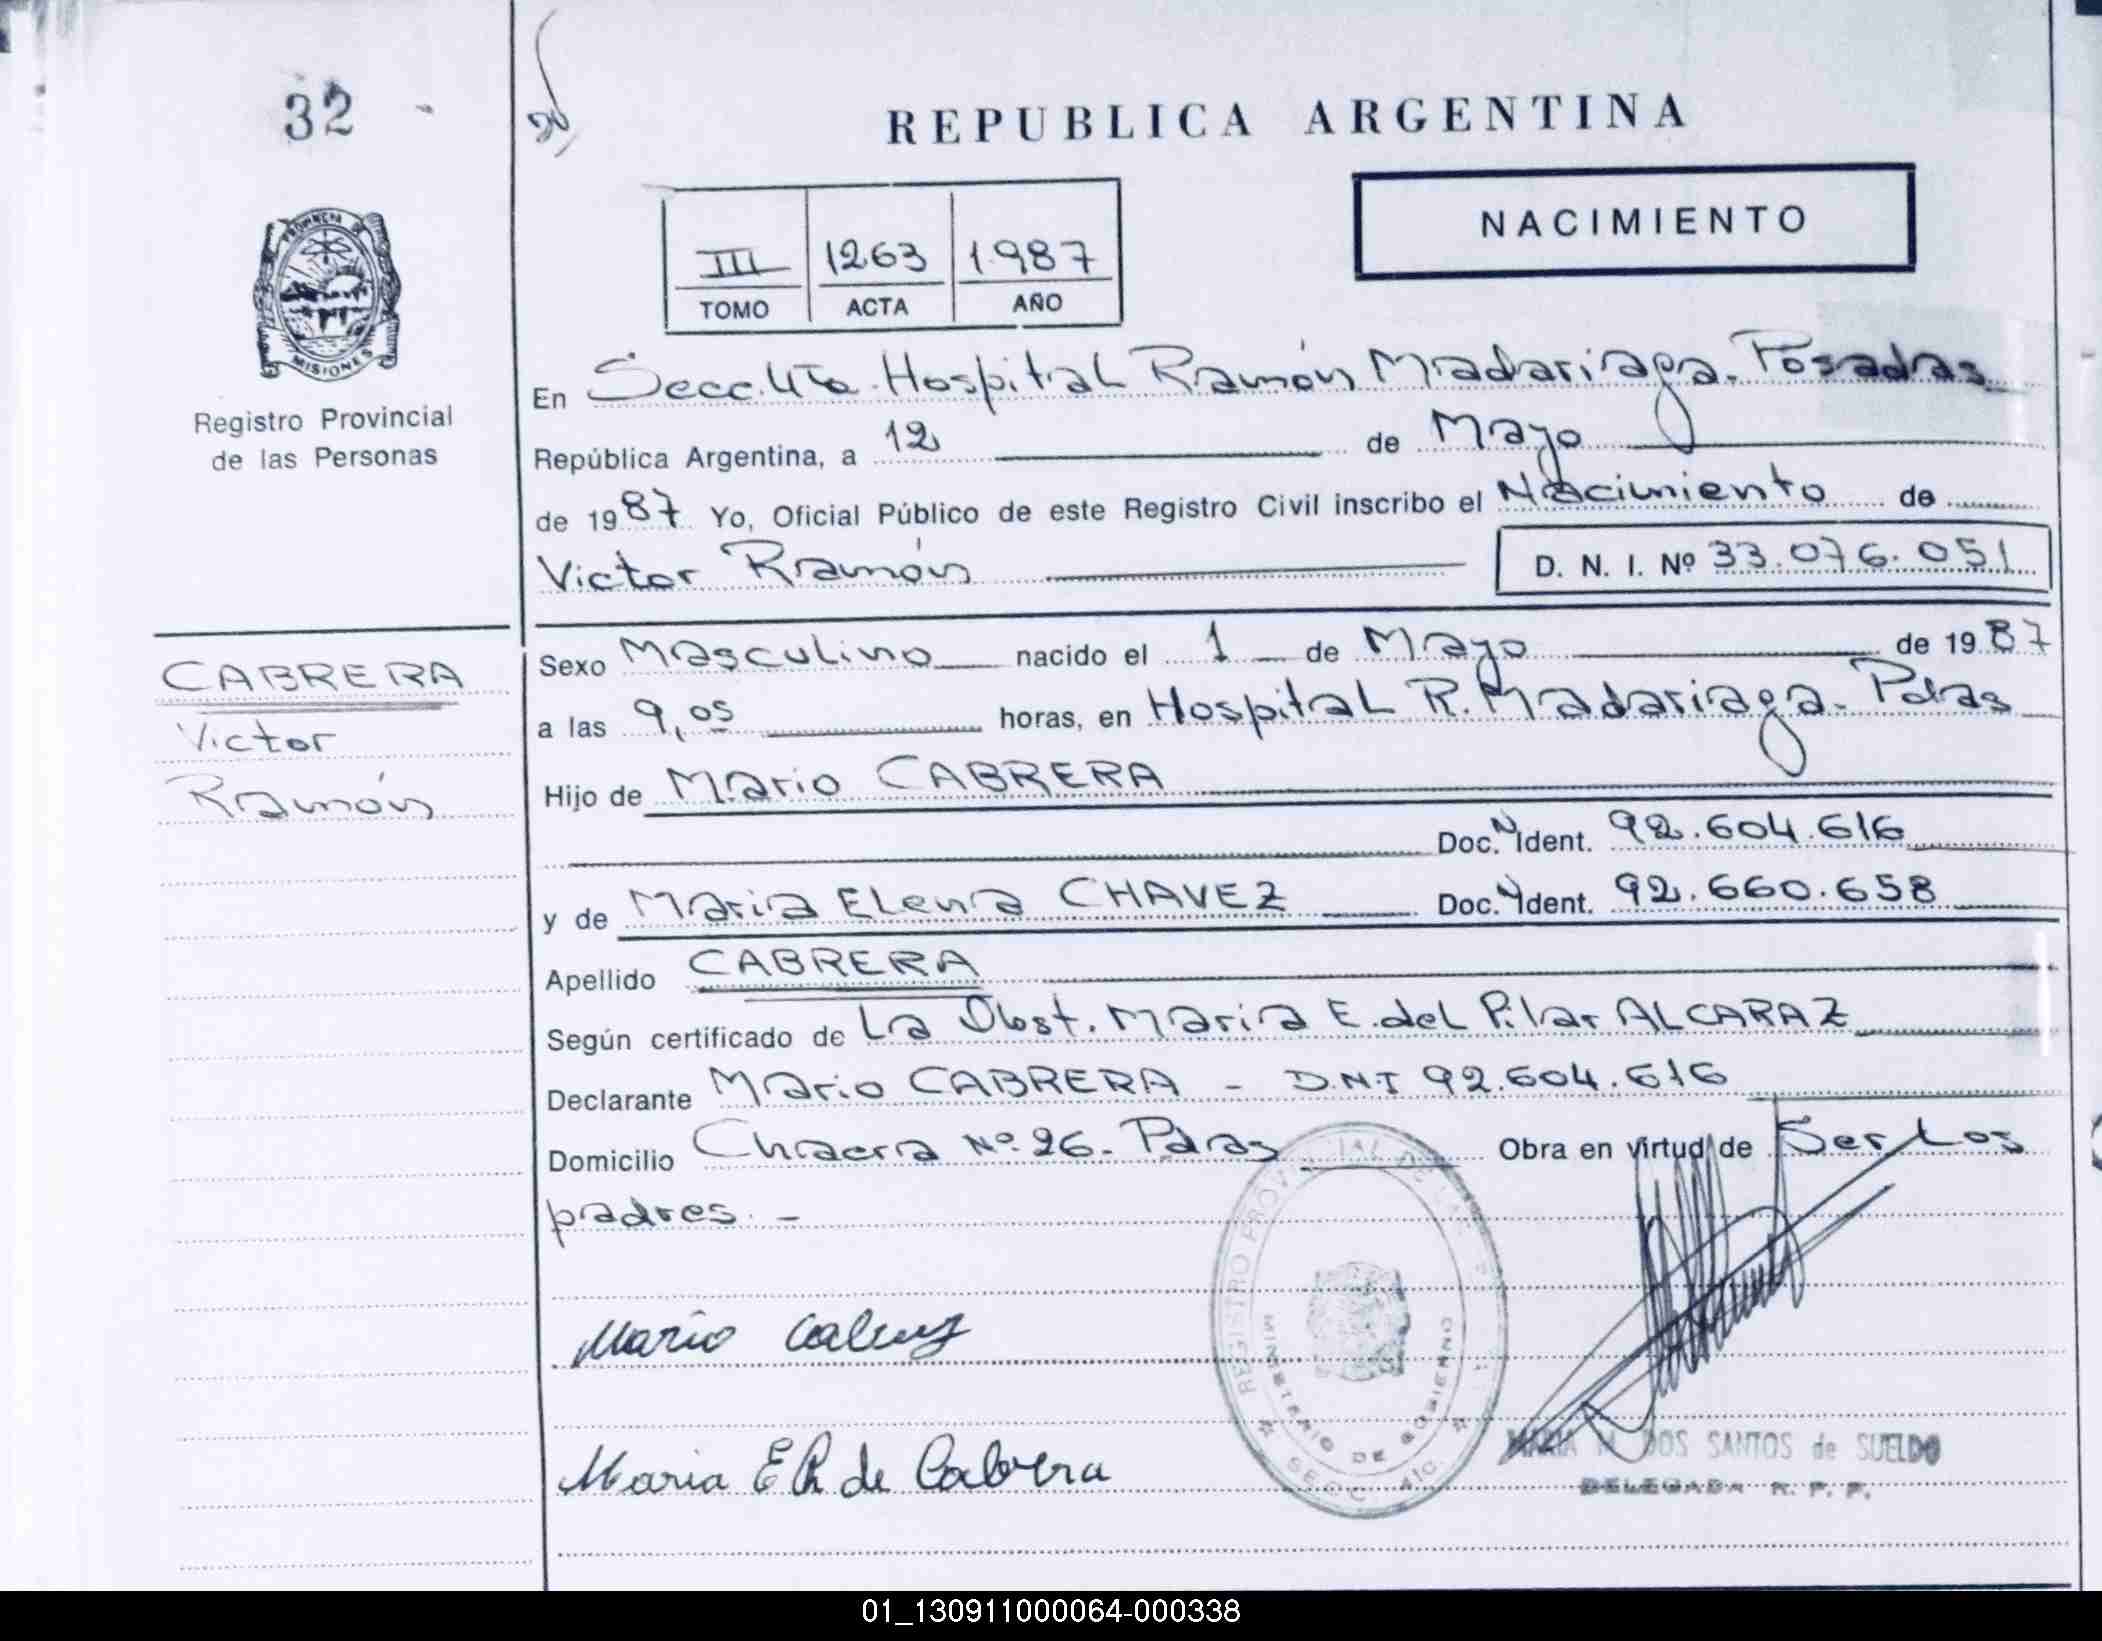 32
REPUBLICA ARGENTINA
NACIMIENTO
III 1263 1987
TOMO ACTA AÑO
PROVINCIA DE
MISIONES
Registro Provincial
de las Personas
En Secc. 4ta. Hospital Ramón Madariaga. Posadas
República Argentina, a 12 de Mayo
de 1987 Yo, Oficial Público de este Registro Civil inscribo el Nacimiento de
Victor Ramón D. N. I. Nº 33.076.051
CABRERA
Victor
Ramón
Sexo Masculino nacido el 1 de Mayo de 1987
a las 9,05 horas, en Hospital R. Madariaga. Pdas
Hijo de Mario CABRERA
Doc. N Ident. 92.604.616
y de Maria Elena CHAVEZ Doc. N Ident. 92.660.658
Apellido CABRERA
Según certificado de La Obst. Maria E. del Pilar ALCARAZ
Declarante Mario CABRERA - D.N.I 92.604.616
Domicilio Chacra Nº 26. Pdas Obra en virtud de Ser Los
padres. -
REGISTRO PROVINCIAL DE LAS
MINISTERIO DE GOBIERNO
SECC. 4ta.
Mario Cabrera
Maria E Ch de Cabrera
MARIA M. DOS SANTOS de SUELDO
DELEGADA R. P. P.
01_130911000064-000338